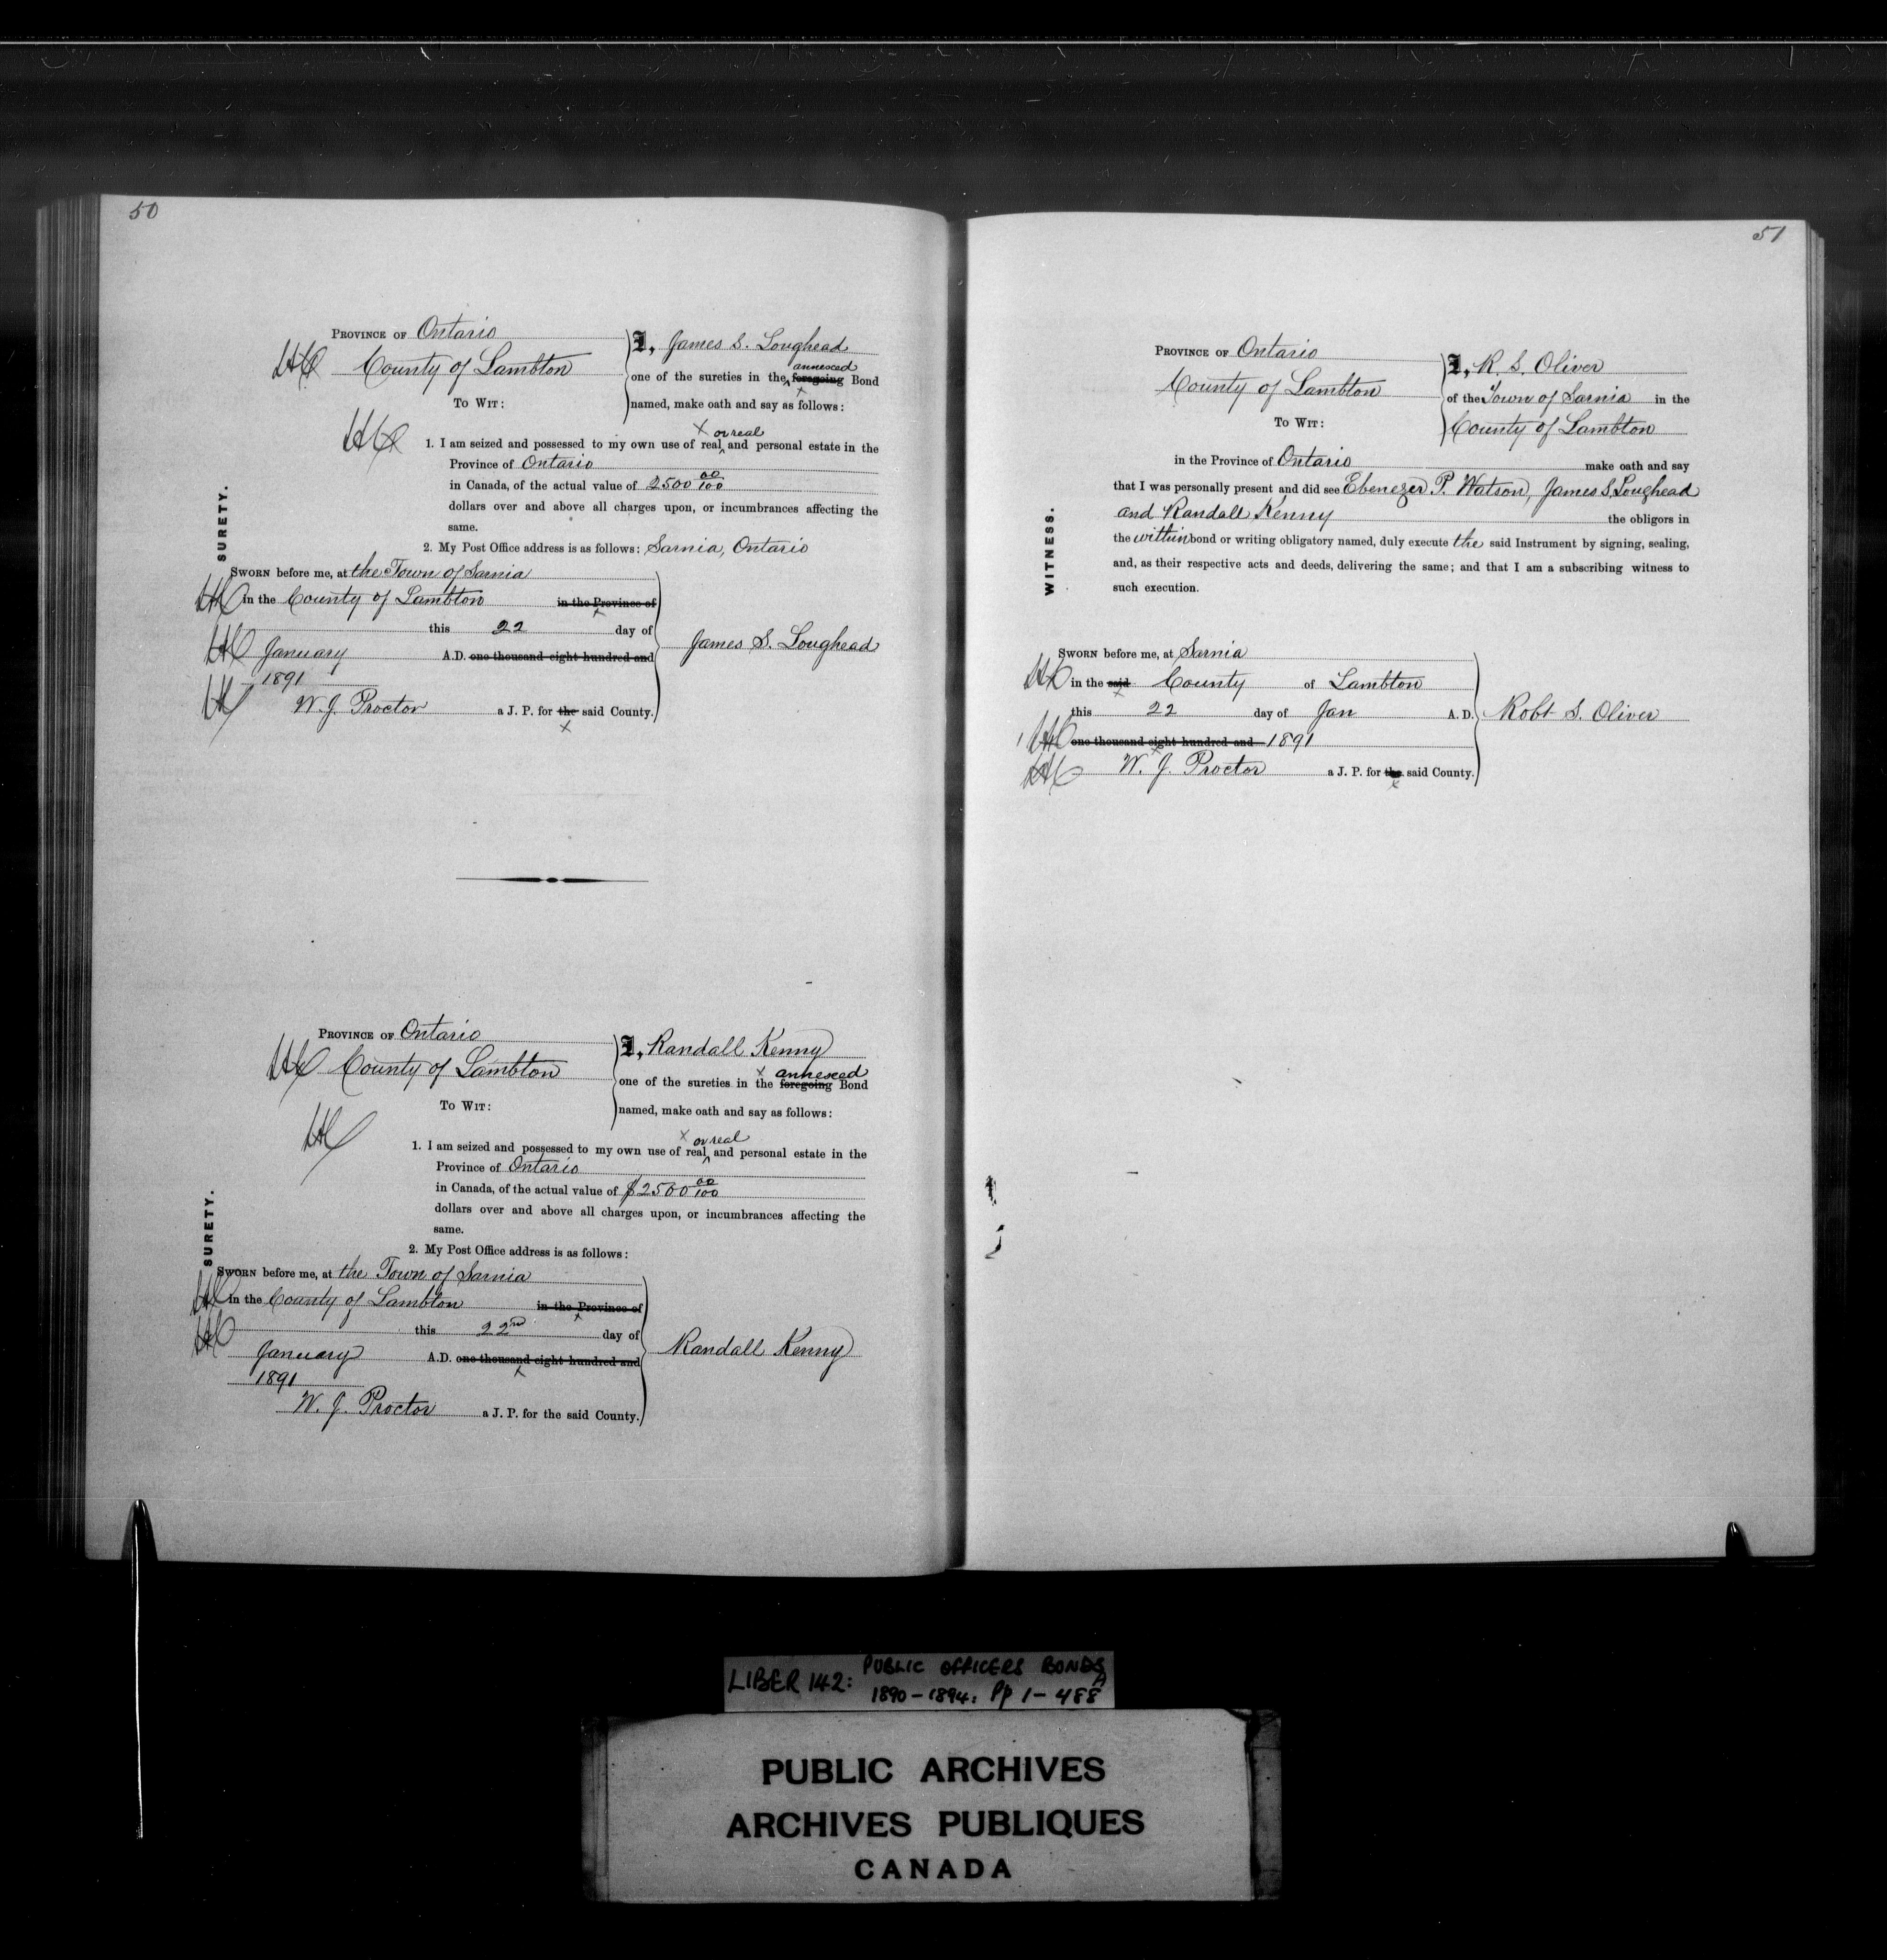 50
PROVINCE OF Ontario
County of Lambton
TO WIT:
I, James S. Loughead
annexed
one of the sureties in the foregoing Bond
named, make oath and say as follows:
x or real
1. I am seized and possessed to my own use of real and personal estate in the
Province of Ontario
in Canada, of the actual value of 2500 00/100
dollars over and above all charges upon, or incumbrances affecting the
same.
2. My Post Office address is as follows: Sarnia, Ontario
SURETY.
SWORN before me, at the Town of Sarnia
in the County of Lambton in the Province of
this 22 day of
January A.D. one thousand eight hundred and
1891
W. J. Proctor a J. P. for the said County.
James S. Loughead
PROVINCE OF Ontario
County of Lambton
TO WIT:
I, Randall Kenny
x annexed
one of the sureties in the foregoing Bond
named, make oath and say as follows:
x or real
1. I am seized and possessed to my own use of real and personal estate in the
Province of Ontario
in Canada, of the actual value of $2500 00/100
dollars over and above all charges upon, or incumbrances affecting the
same.
2. My Post Office address is as follows:
SURETY.
SWORN before me, at the Town of Sarnia
in the County of Lambton in the Province of
this 22nd day of
January A.D. one thousand eight hundred and
1891
W. J. Proctor a J. P. for the said County.
Randall Kenny
51
PROVINCE OF Ontario
County of Lambton
TO WIT:
I, R. S. Oliver
of the Town of Sarnia in the
County of Lambton
in the Province of Ontario make oath and say
that I was personally present and did see Ebenezer P. Watson, James S. Loughead
and Randall Kenny the obligors in
the within bond or writing obligatory named, duly execute the said Instrument by signing, sealing,
and, as their respective acts and deeds, delivering the same; and that I am a subscribing witness to
such execution.
WITNESS.
SWORN before me, at Sarnia
in the said County of Lambton
this 22 day of Jan A.D.
one thousand eight hundred and 1891
W. J. Proctor a J. P. for the said County.
Robt S. Oliver
LIBER 142: PUBLIC OFFICERS BONDS
1890-1894: Pp 1-488A
PUBLIC ARCHIVES
ARCHIVES PUBLIQUES
CANADA